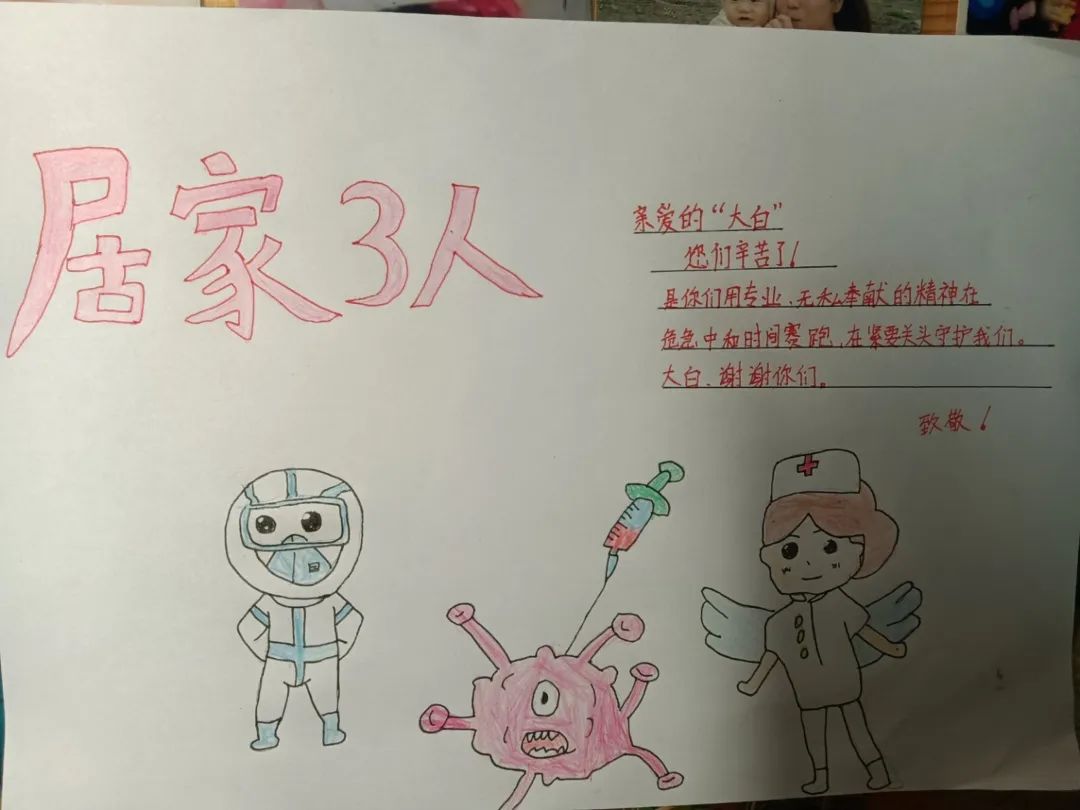 居家3人
亲爱的“大白”
您们辛苦了！
是你们用专业、无私奉献的精神在
危急中和时间赛跑，在紧要关头守护我们。
大白、谢谢你们。
致敬！